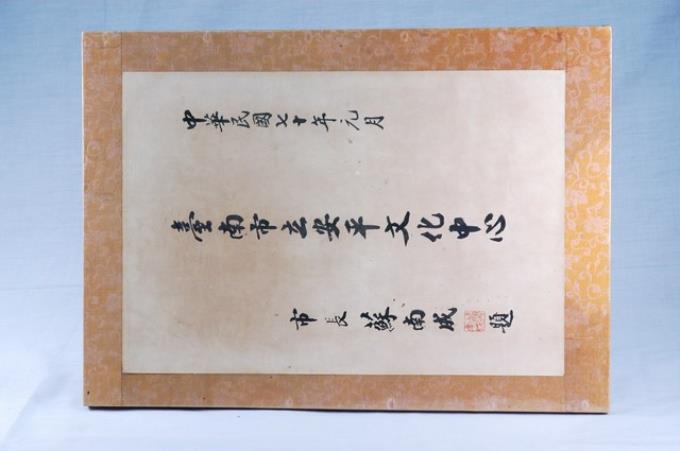 中華民國七十年元月
臺南市立安平文化中心
市長蘇南成題